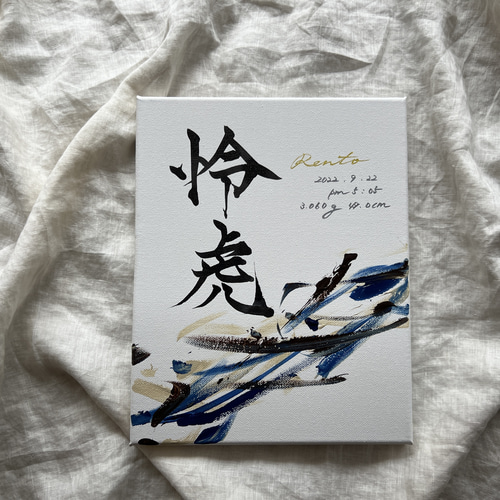 怜虎
Rento
2022.9.22
pm 5:05
3.060g 49.0cm